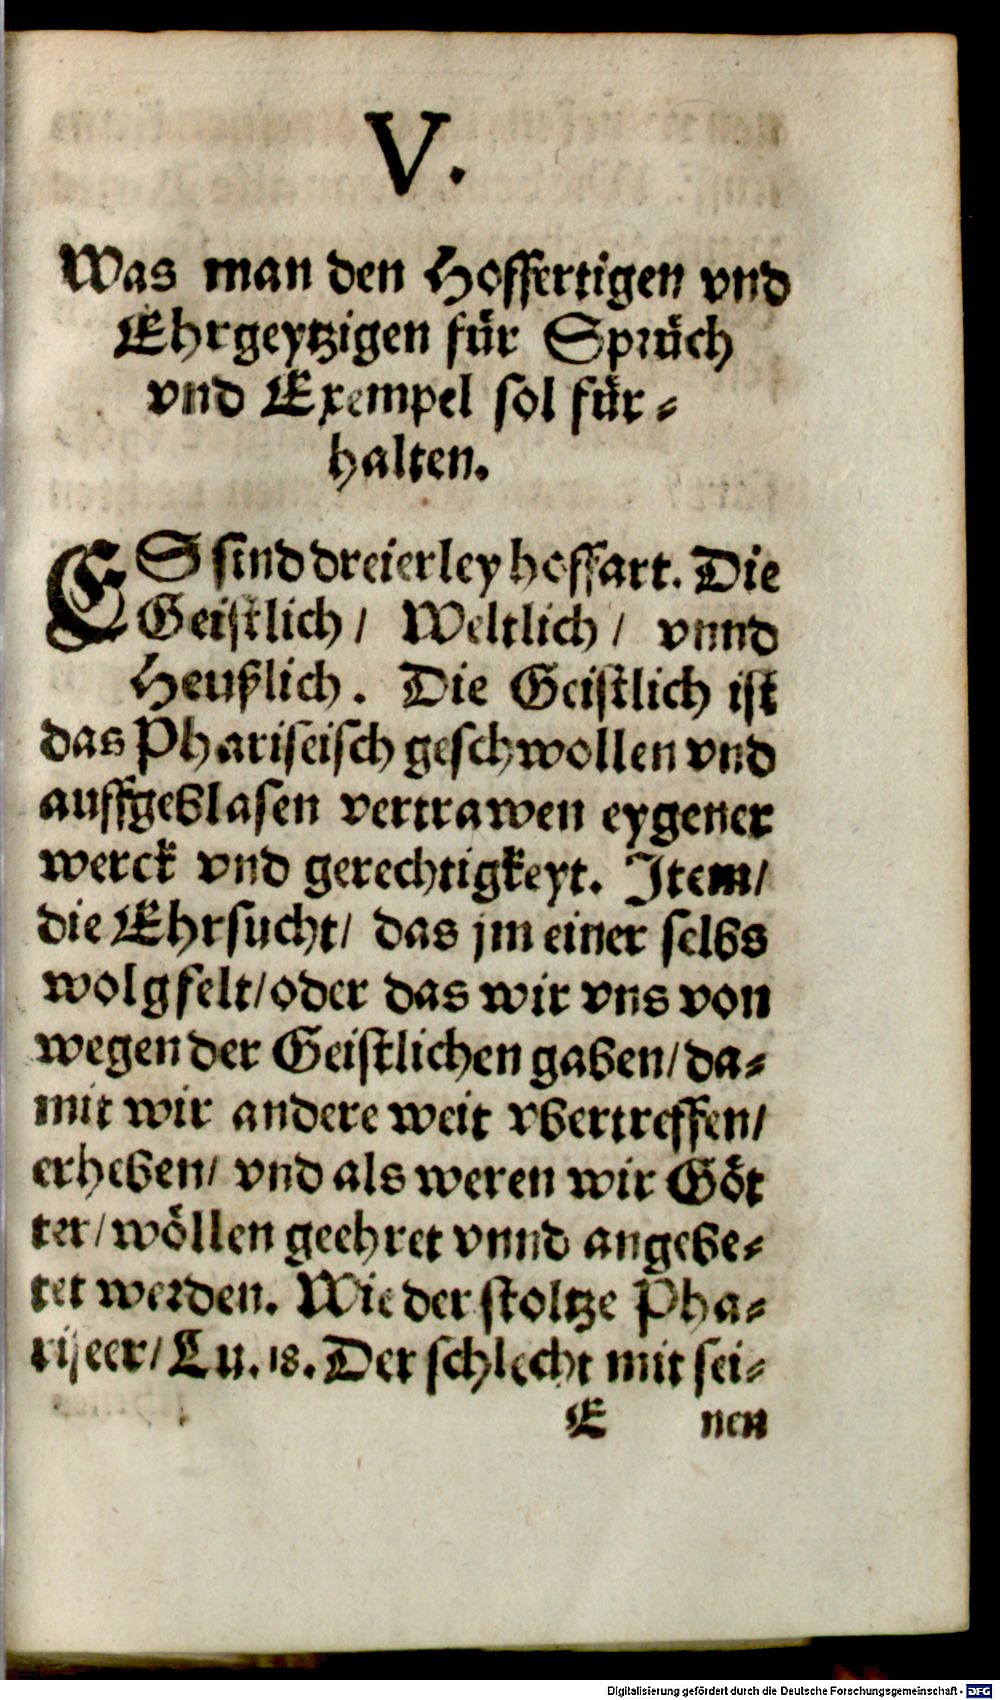 V.
Was man den Hoffertigen vnd
Ehrgeytzigen für Sprüch
vnd Exempel sol für-
halten.
ES sind dreierley hoffart. Die
Geistlich / Weltlich / vnnd
Heußlich. Die Geistlich ist
das Phariseisch geschwollen vnd
auffgeblasen vertrawen eygener
werck vnd gerechtigkeyt. Item/
die Ehrsucht/ das jm einer selbs
wolgfelt/oder das wir vns von
wegen der Geistlichen gaben/da-
mit wir andere weit vbertreffen/
erheben/ vnd als weren wir Göt
ter/wöllen geehret vnnd angebe-
tet werden. Wie der stoltze Pha-
riseer/Lu.18. Der schlecht mit sei-
E nen
Digitalisierung gefördert durch die Deutsche Forschungsgemeinschaft - DFG